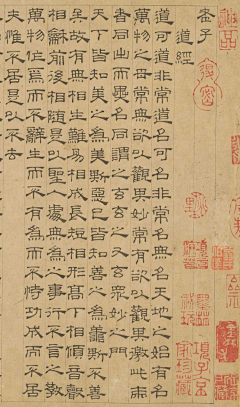 老子
道經
道可道非常道名可名非常名無名天地之始有名
萬物之母常無欲以觀其妙常有欲以觀其徼此兩
者同出而異名同謂之玄玄之又玄衆妙之門
天下皆知美之為美斯惡已皆知善之為善斯不善
矣故有無相生難易相成長短相形高下相傾音聲
相和前後相隨是以聖人處無為之事行不言之教
萬物作焉而不辭生而不有為而不恃功成而不居
夫惟不居是以不去